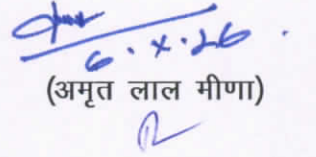 6.X.26.
(अमृत लाल मीणा)